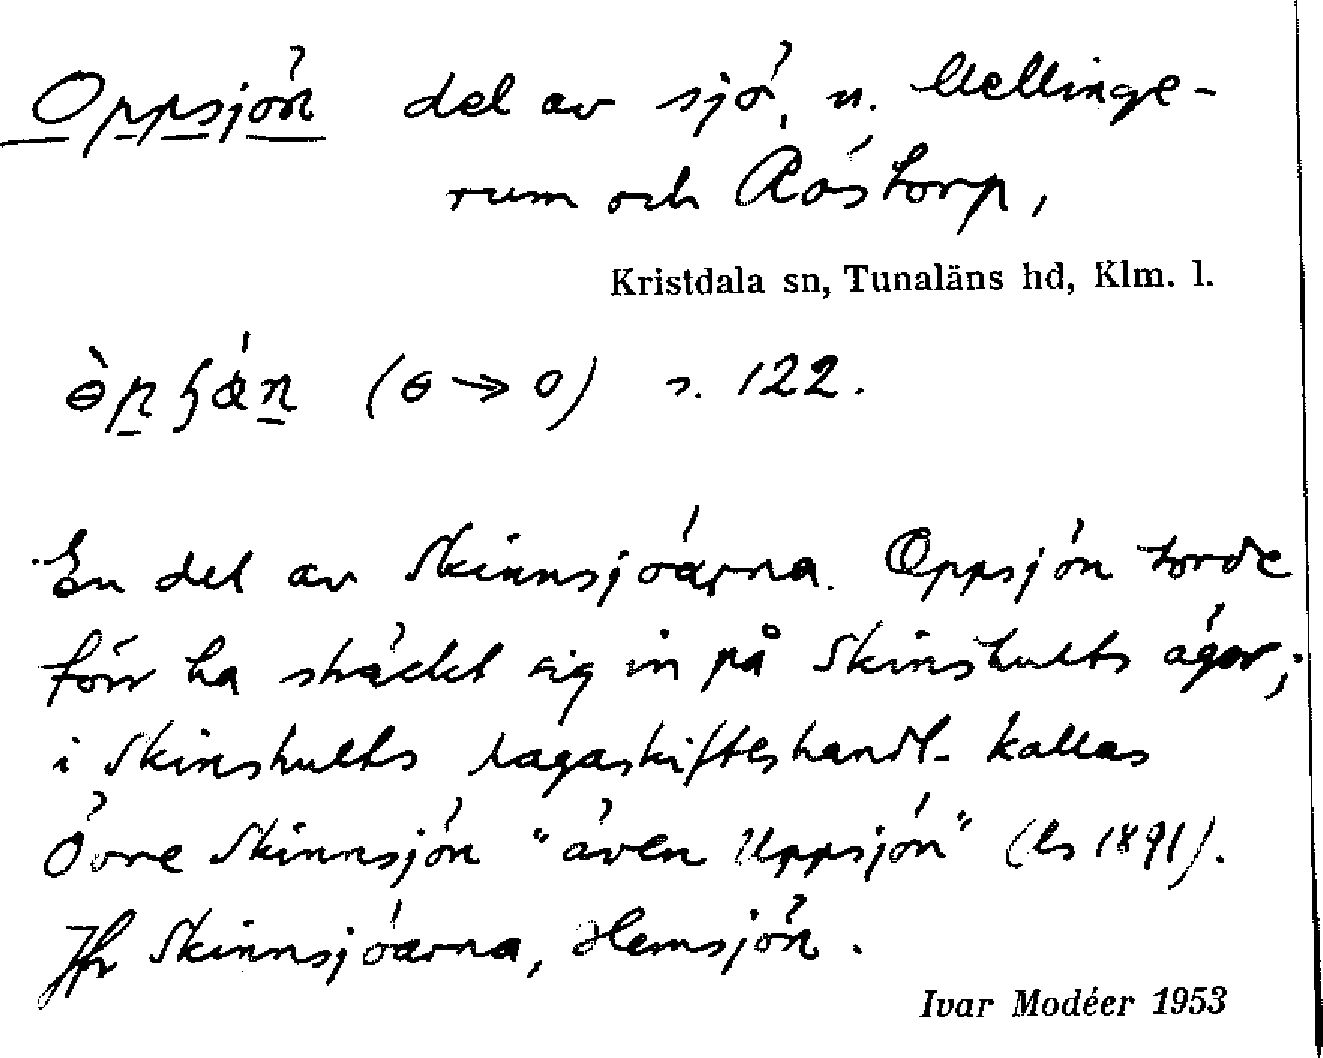 Oppsjön del av sjö, n. Mellinge-
rum och Röstorp,
Kristdala sn, Tunaläns hd, Klm. l.
(ɵ → o) s. 122.
En del av Skinnsjöarna. Oppsjön torde
förr ha sträckt sig in på Skinshults ägor;
i Skinshults lagaskifteshandl. kallas
Övre Skinnsjön "även Uppsjön" (ls 1891).
Jfr Skinnsjöarna, Hemsjön.
Ivar Modéer 1953